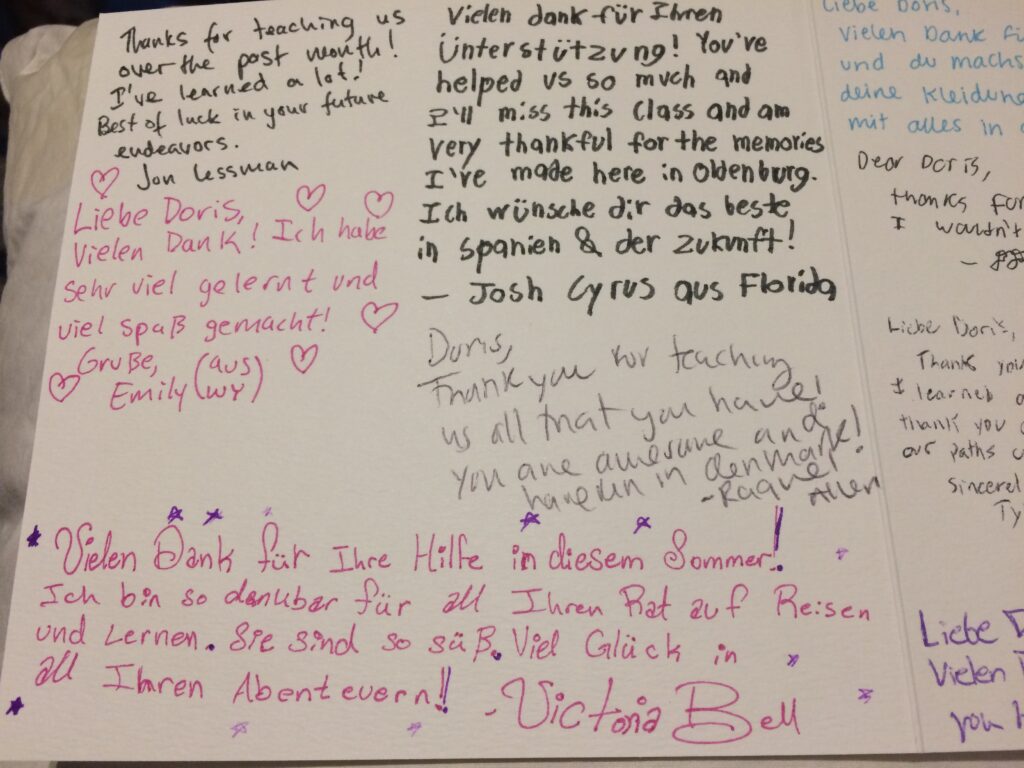 Thanks for teaching us
over the past month!
I've learned a lot!
Best of luck in your future
endeavors.
Jon Lessman
Liebe Doris,
Vielen Dank! Ich habe
sehr viel gelernt und
viel spaß gemacht!
Gruße,
Emily (aus WY)
Vielen dank für Ihren
Unterstützung! You've
helped us so much and
I'll miss this class and am
very thankful for the memories
I've made here in Oldenburg.
Ich wünsche dir das beste
in spanien & der zukunft!
– Josh Cyrus aus Florida
Doris,
Thank you for teaching
us all that you have!
You are awesome and
have fun in denmark!
- Raquel Allen
Vielen Dank für Ihre Hilfe in diesem Sommer!
Ich bin so danubar für all Ihren Rat auf Reisen
und Lernen. Sie sind so süß. Viel Glück in
all Ihren Abenteuern!! - Victoria Bell
Liebe Doris,
Vielen Dank
und du machs
deine Kleidung
mit alles in
Dear Doris,
thanks for
I wouldn't
Liebe Doris,
Thank you
I learned
thank you
our paths
Sincerel
Ty
Liebe D
Vielen
you h